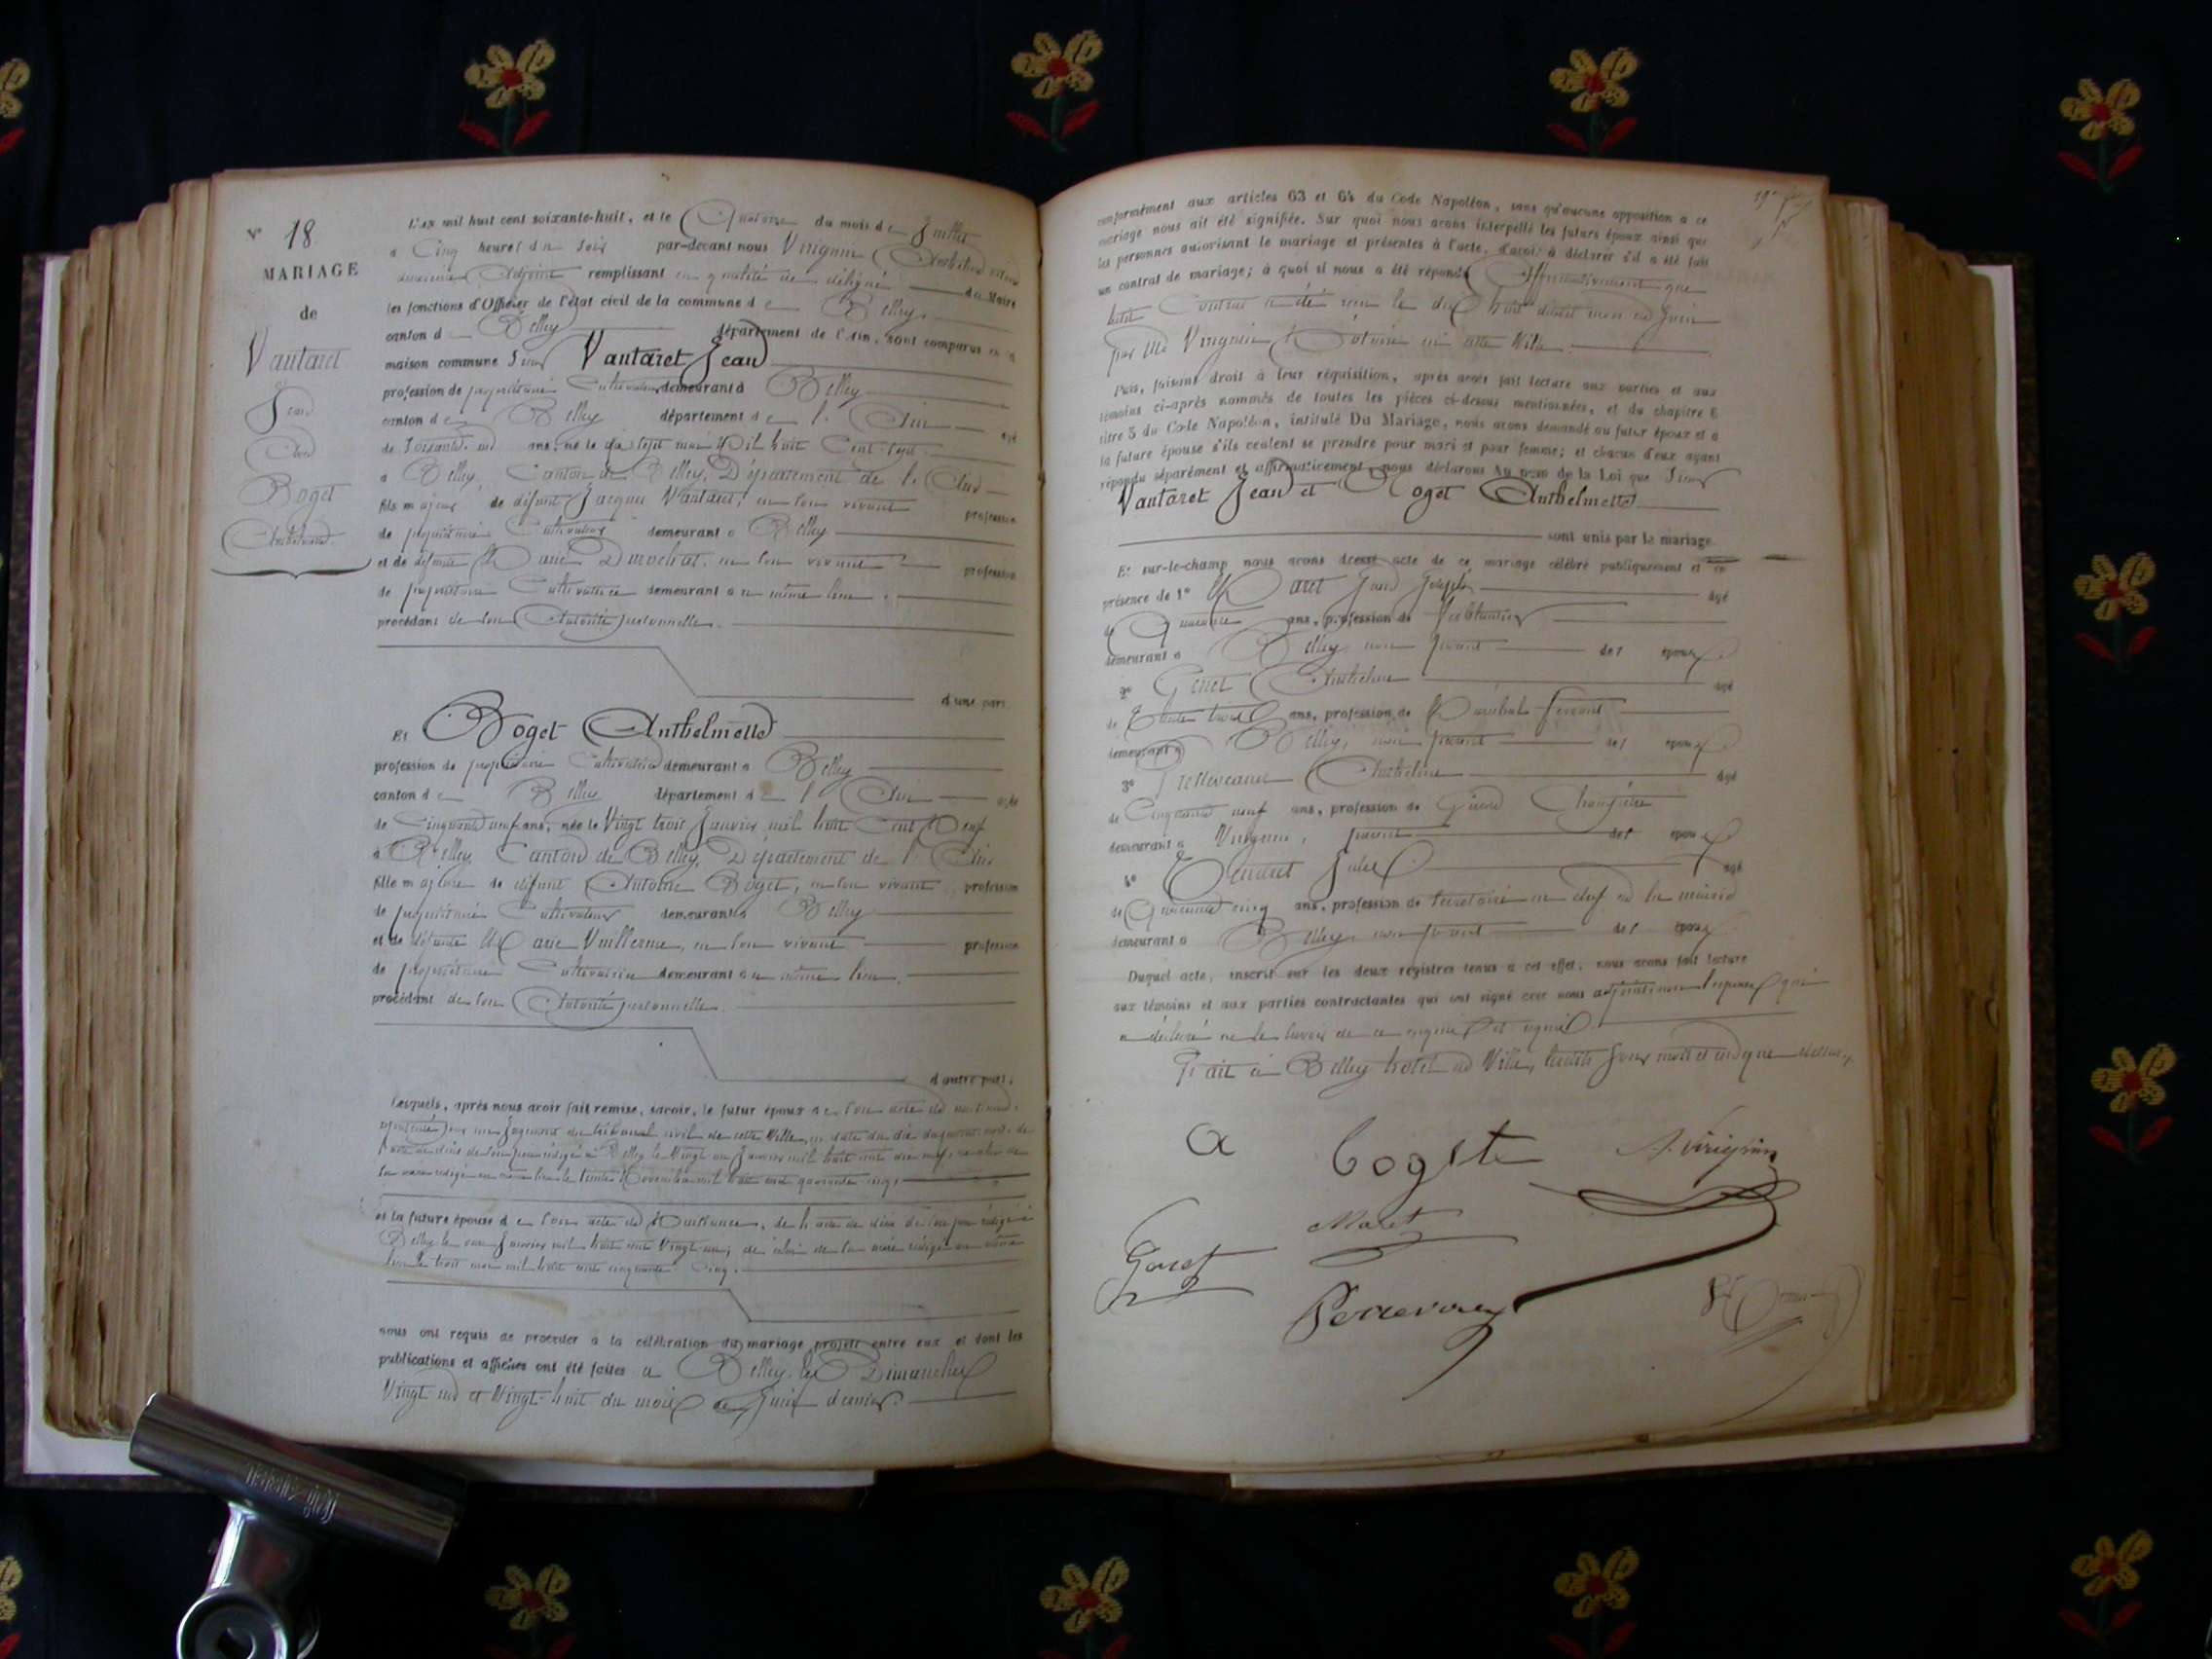 N° 18
MARIAGE
de
Vautaret
Jean
et
Boget
Anthelmette
L'an mil huit cent soixante-huit, et le Quatorze du mois de Juillet
à Cinq heures du soir par-devant nous Virignin Anthelme
Adjoint remplissant en qualité de délégué du Maire
les fonctions d'Officier de l'état civil de la commune de Belley
canton de Belley département de l'Ain, sont comparus en la
maison commune Sieur Vautaret Jean
profession de propriétaire Cultivateur demeurant à Belley
canton de Belley département de l'Ain âgé
de Soixante un ans, né le sept mai mil huit Cent Sept
à Belley, Canton de Belley, Département de l'Ain
fils majeur de défunt Jacques Vautaret, en son vivant profession
de propriétaire Cultivateur demeurant à Belley
et de défunte Marie Durochat, en son vivant profession
de propriétaire Cultivatrice demeurant au même lieu,
procédant de son Autorité personnelle.
d'une part.
Et Boget Anthelmette
profession de propriétaire Cultivatrice demeurant à Belley
canton de Belley département de l'Ain âgée
de Cinquante neuf ans, née le Vingt trois Janvier mil huit Cent Neuf
à Belley, Canton de Belley, Département de l'Ain
fille majeure de défunt Antoine Boget, en son vivant profession
de propriétaire Cultivateur demeurant à Belley
et de défunte Marie Vuillerme, en son vivant profession
de propriétaire Cultivatrice demeurant au même lieu,
procédant de son Autorité personnelle.
d'autre part,
Lesquels, après nous avoir fait remise, savoir, le futur époux de son acte de
par un Jugement du tribunal civil de cette Ville, en date du dix
l'acte de décès de son père rédigé à Belley le Vingt un Janvier mil huit cent dix neuf, de celui de
sa mère rédigé au même lieu le trente Novembre mil huit cent quarante cinq,
et la future épouse de son acte de Naissance, de l'acte de décès de son père rédigé à
Belley le onze Janvier mil huit cent Vingt un, de celui de sa mère rédigé au même
lieu le trois mai mil huit cent cinquante Cinq.
nous ont requis de procéder à la célébration du mariage projeté entre eux et dont les
publications et affiches ont été faites à Belley, les Dimanches
Vingt un et Vingt-huit du mois de Juin dernier.
conformément aux articles 63 et 64 du Code Napoléon, sans qu'aucune opposition à ce
mariage nous ait été signifiée. Sur quoi nous avons interpellé les futurs époux ainsi que
les personnes autorisant le mariage et présentes à l'acte, d'avoir à déclarer s'il a été fait
un contrat de mariage; à quoi il nous a été répondu Affirmativement que
ledit Contrat a été reçu le dix huit dudit mois de Juin
par Me Virignin Notaire en cette Ville.
Puis, faisant droit à leur réquisition, après avoir fait lecture aux parties et aux
témoins ci-après nommés de toutes les pièces ci-dessus mentionnées, et du chapitre 6
titre 5 du Code Napoléon, intitulé Du Mariage, nous avons demandé au futur époux et à
la future épouse s'ils veulent se prendre pour mari et pour femme; et chacun d'eux ayant
répondu séparément et affirmativement, nous déclarons Au nom de la Loi que Sieur
Vautaret Jean et Boget Anthelmette
sont unis par le mariage.
Et sur-le-champ nous avons dressé acte de ce mariage célébré publiquement et en
présence de 1° Maret Jean Joseph âgé
de Quarante ans, profession de Ferblantier
demeurant à Belley, non parent des époux
2° Genet Anthelme âgé
de Trente trois ans, profession de Maréchal ferrant
demeurant à Belley, non parent des époux
3° Anthelme âgé
de Cinquante neuf ans, profession de Garde Champêtre
demeurant à Virignin, parent des époux
4° Jules âgé
de Quarante cinq ans, profession de Secrétaire en chef de la mairie
demeurant à Belley, non parent des époux
Duquel acte, inscrit sur les deux registres tenus à cet effet, nous avons fait lecture
aux témoins et aux parties contractantes qui ont signé avec nous adjoint l'époux qui
a déclaré ne le savoir de ce enquis et requis.
Fait à Belley hôtel de Ville, lesdits jour mois et an que dessus,
a boget A. Virignin
Maret
Genet